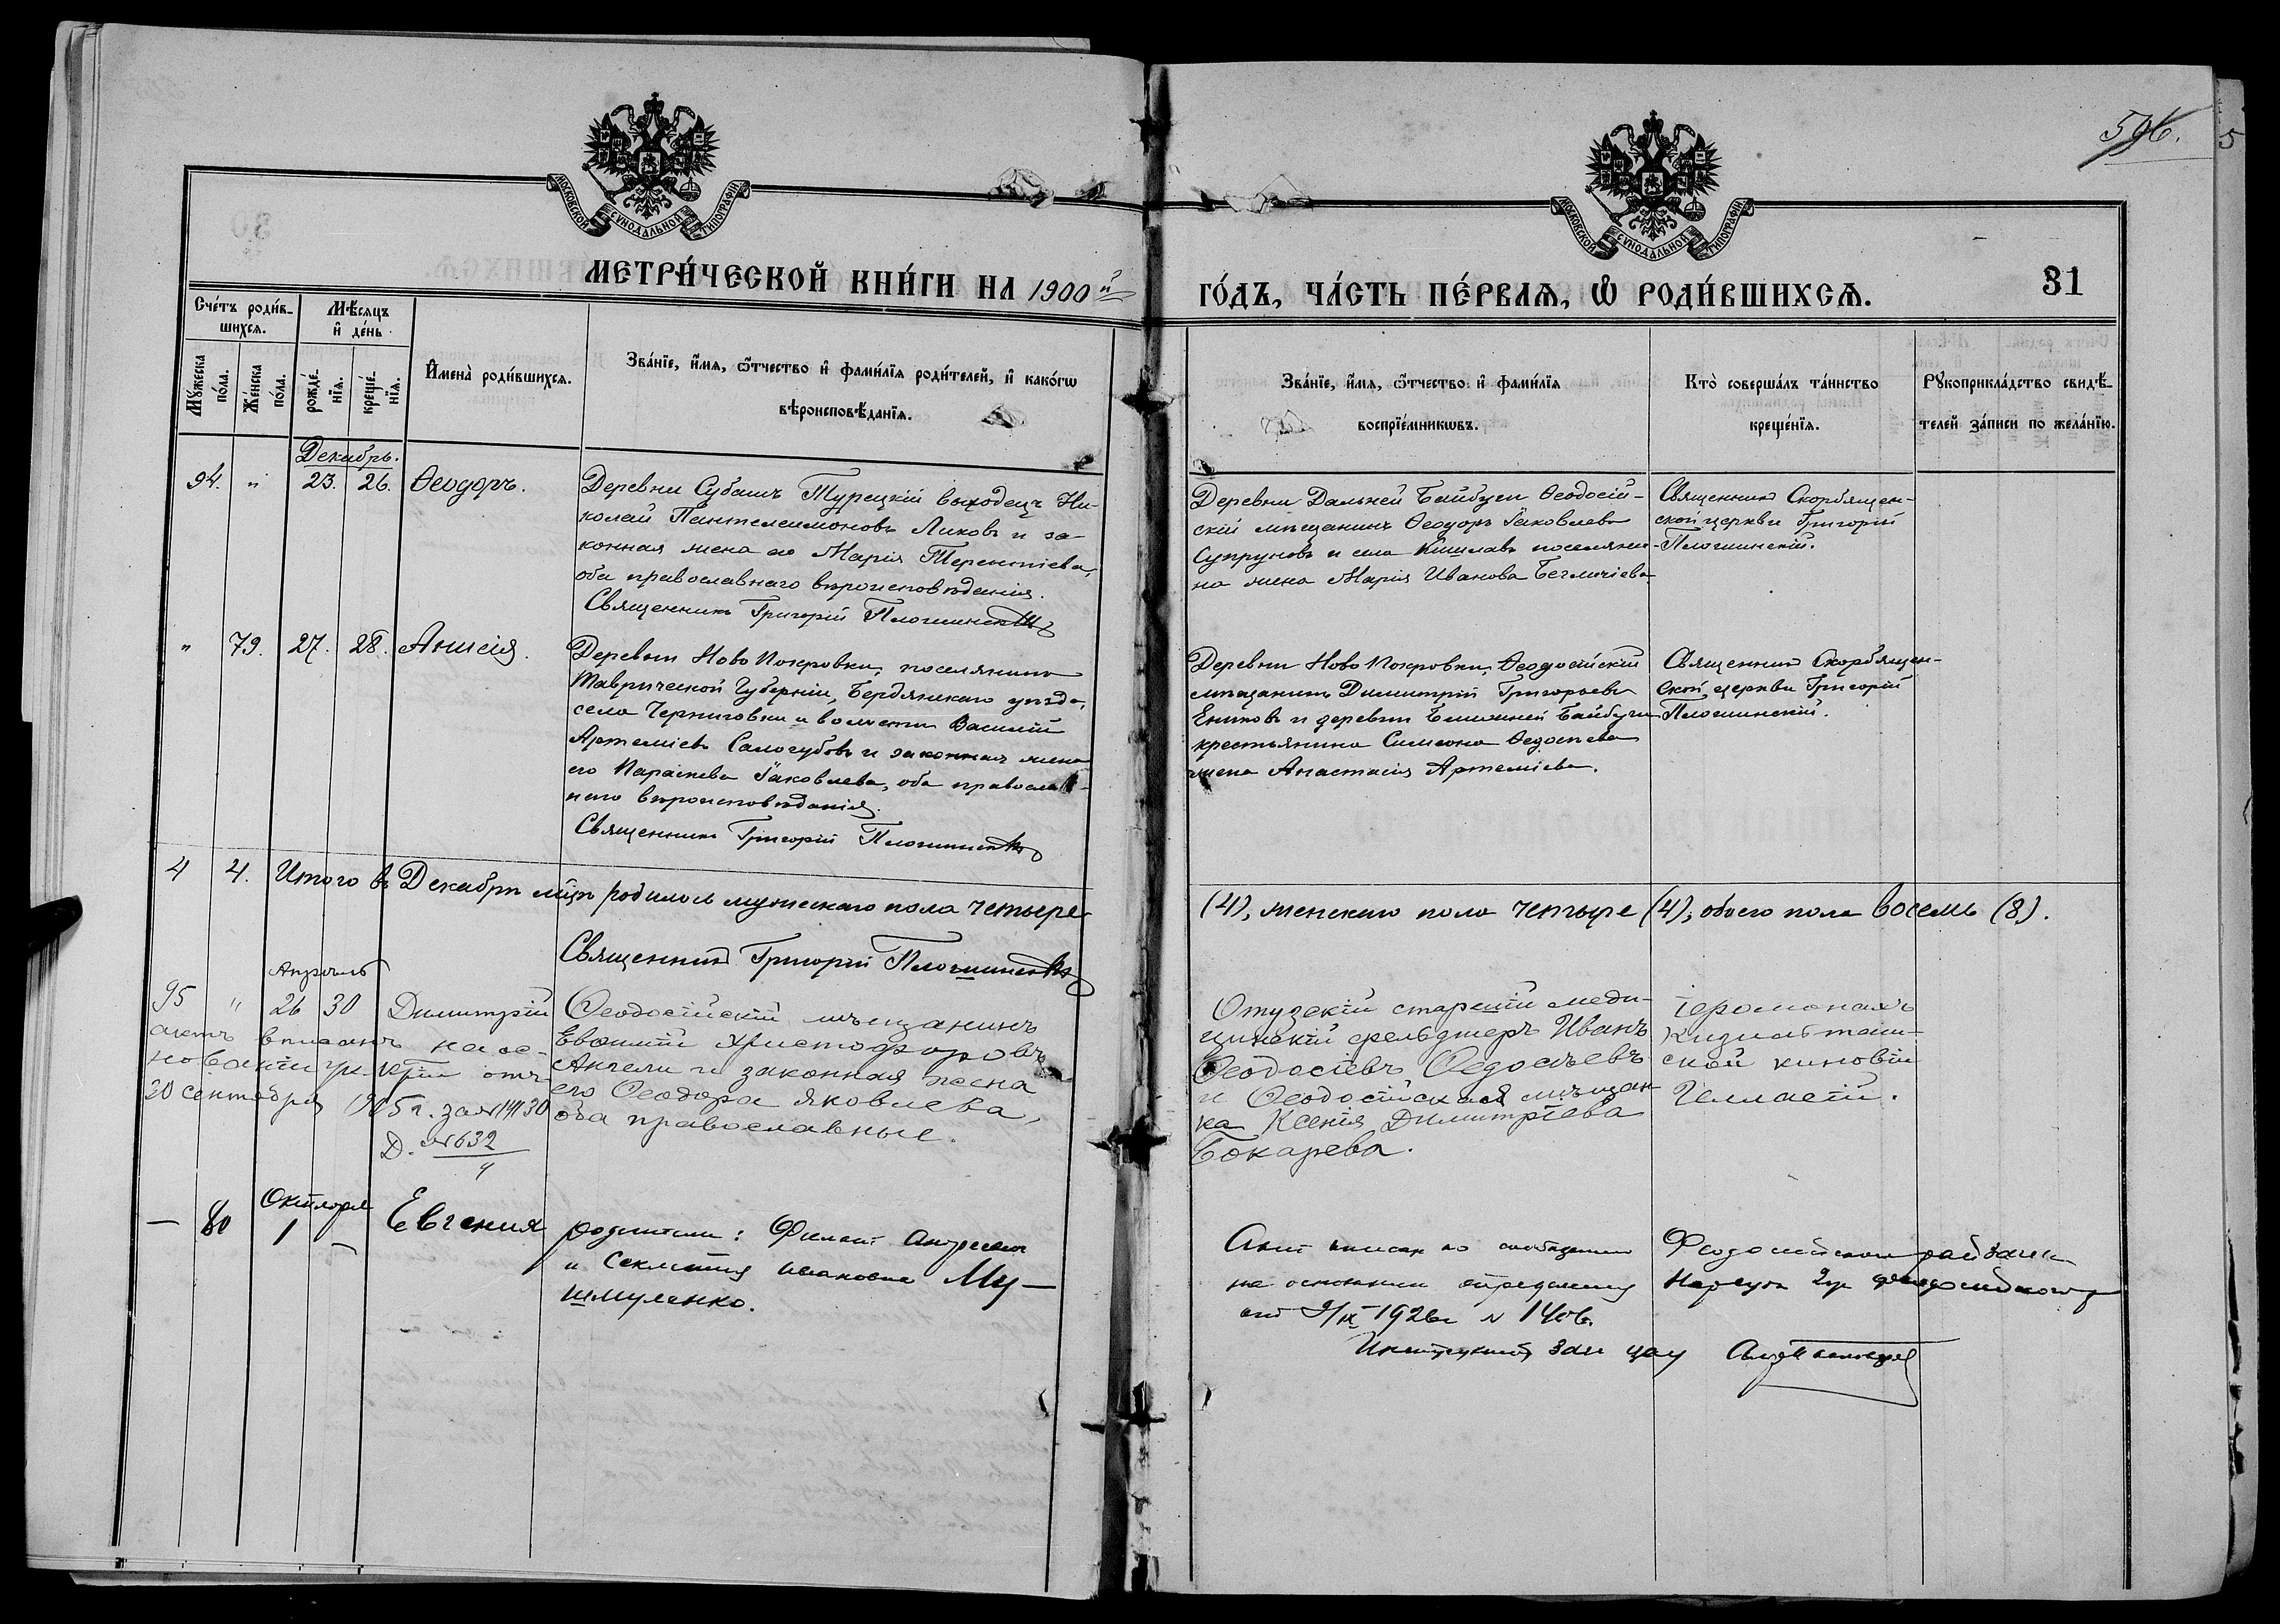 596.
МОСКОВСКОЙ СУНОДАЛЬНОЙ ТИПОГРАФІИ
МОСКОВСКОЙ СУНОДАЛЬНОЙ ТИПОГРАФІИ
МЕТРИ́ЧЕСКОЙ КНИ́ГИ НА 1900й
ГО́ДЪ, ЧА́СТЬ ПЕ́РВАѦ, Ѡ҆ РОДИ́ВШИХСѦ.
31
Сче́тъ роди́в-
шихсѧ.
Мѣ́сѧцъ
и҆ де́нь
Мꙋ́жеска
по́ла.
Же́нска
по́ла.
рожде́-
нїѧ.
креще́-
нїѧ.
И҆мена̀ роди́вшихсѧ.
Зва́нїе, и҆́мѧ, ѻ҆́тчество и҆ фами́лїѧ роди́телей, и҆ како́гѡ
вѣроисповѣ́данїѧ.
Зва́нїе, и҆́мѧ, ѻ҆́тчество и҆ фами́лїѧ
воспрїе́мникѡвъ.
Кто̀ соверша́лъ та́инство
креще́нїѧ.
Рꙋкоприкла́дство свидѣ́-
телей за́писи по жела́нїю.
Декабрь.
94. " 23. 26. Ѳеодоръ.
Деревни Субашъ Турецкій выходецъ Ни-
колай Пантелеимоновъ Ликовъ и за-
конная жена его Марія Терентіева,
оба православнаго вѣроисповѣданія.
Священникъ Григорій
Деревни Дальней Байбуги Ѳеодосій-
скій мѣщанинъ Ѳеодоръ Іаковлевъ
Супруновъ и села Кишлавъ поселяни-
на жена Марія Иванова
Священникъ Скорбящен-
ской церкви Григорій
" 79. 27. 28. Анисія.
Деревни Ново Покровки, поселянинъ
Таврической Губерніи, Бердянскаго уѣзда,
села Черниговки и волости Василій
Артеміевъ Самогубовъ и законная жена
его Параскева Іаковлева, оба православ-
наго вѣроисповѣданія.
Священникъ Григорій
Деревни Ново Покровки, Ѳеодосійскій
мѣщанинъ Димитрій Григорьевъ
Ениковъ и деревни Ближней Байбуги
крестьянина Симеона Ѳедосѣева
жена Анастасія Артеміева.
Священникъ Скорбящен-
ской церкви Григорій
4 4. Итого въ Декабрѣ мцѣ родилось мужескаго пола четыре
(4), женскаго пола четыре (4), обоего пола восемь (8).
Священникъ Григорій
Апрѣль
95 " 26 30 Димитрій
актъ вписанъ на ос-
нованіи отъ
20 сентября 1905 г. за № 14130
Д. № 632
Ѳеодосійскій мѣщанинъ
Евѳимій Христофоровъ
Ангели и законная жена
его Ѳеодора Яковлева,
оба православные.
Отузскій старшій меди-
цинскій фельдшеръ Иванъ
Ѳеодосіевъ Ѳедосѣевъ
и Ѳеодосійская мѣщан-
ка Ксенія Димитріева
Бокарева.
Іеромонахъ
Кизильташ-
ской киновіи
Октября
— 80 1 — Евгения
родители: Филипп Андреевич
и Секлетия Ивановна Му-
шмуленко.
Акт вписан по сообщению Феодосийского райзагса
на основании определения Нарсуда 2 уч Феодосийского р
от 9/IX 1926 г № 1406.